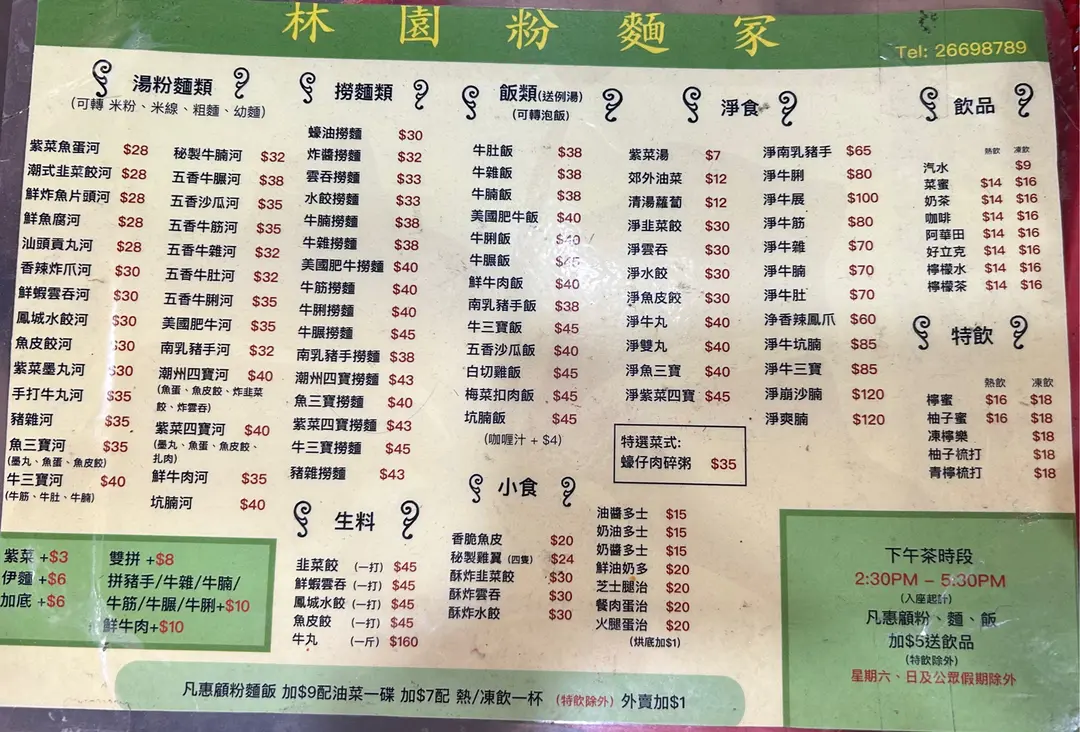 林園粉麵家
Tel: 26698789
湯粉麵類
(可轉 米粉、米線、粗麵、幼麵)
紫菜魚蛋河 $28
潮式韭菜餃河 $28
鮮炸魚片頭河 $28
鮮魚腐河 $28
汕頭貢丸河 $28
香辣炸爪河 $30
鮮蝦雲吞河 $30
鳳城水餃河 $30
魚皮餃河 $30
紫菜墨丸河 $30
手打牛丸河 $35
豬雜河 $35
魚三寶河 $35
(墨丸、魚蛋、魚皮餃)
牛三寶河 $40
(牛筋、牛肚、牛腩)
秘製牛腩河 $32
五香牛𦟌河 $38
五香沙瓜河 $35
五香牛筋河 $35
五香牛雜河 $32
五香牛肚河 $32
五香牛脷河 $35
美國肥牛河 $35
南乳豬手河 $32
潮州四寶河 $40
(魚蛋、魚皮餃、炸韭菜
餃、炸雲吞)
紫菜四寶河 $40
(墨丸、魚蛋、魚皮餃、
扎肉)
鮮牛肉河 $35
坑腩河 $40
撈麵類
蠔油撈麵 $30
炸醬撈麵 $32
雲吞撈麵 $33
水餃撈麵 $33
牛腩撈麵 $38
牛雜撈麵 $38
美國肥牛撈麵 $40
牛筋撈麵 $40
牛脷撈麵 $40
牛𦟌撈麵 $45
南乳豬手撈麵 $38
潮州四寶撈麵 $43
魚三寶撈麵 $40
紫菜四寶撈麵 $43
牛三寶撈麵 $45
豬雜撈麵 $43
飯類(送例湯)
(可轉泡飯)
牛肚飯 $38
牛雜飯 $38
牛腩飯 $38
美國肥牛飯 $40
牛脷飯 $40
牛𦟌飯 $45
鮮牛肉飯 $40
南乳豬手飯 $38
牛三寶飯 $45
五香沙瓜飯 $40
白切雞飯 $45
梅菜扣肉飯 $45
坑腩飯 $45
(咖喱汁 + $4)
淨食
紫菜湯 $7
郊外油菜 $12
清湯蘿蔔 $12
淨韭菜餃 $30
淨雲吞 $30
淨水餃 $30
淨魚皮餃 $30
淨牛丸 $40
淨雙丸 $40
淨魚三寶 $40
淨紫菜四寶 $45
淨南乳豬手 $65
淨牛脷 $80
淨牛展 $100
淨牛筋 $80
淨牛雜 $70
淨牛腩 $70
淨牛肚 $70
净香辣鳳爪 $60
淨牛坑腩 $85
淨牛三寶 $85
淨崩沙腩 $120
淨爽腩 $120
特選菜式:
蠔仔肉碎粥 $35
飲品
熱飲 凍飲
汽水 $9
菜蜜 $14 $16
奶茶 $14 $16
咖啡 $14 $16
阿華田 $14 $16
好立克 $14 $16
檸檬水 $14 $16
檸檬茶 $14 $16
特飲
熱飲 凍飲
檸蜜 $16 $18
柚子蜜 $16 $18
凍檸樂 $18
柚子梳打 $18
青檸梳打 $18
紫菜 +$3
伊麵 +$6
加底 +$6
雙拼 +$8
拼豬手/牛雜/牛腩/
牛筋/牛𦟌/牛脷+$10
鮮牛肉+$10
生料
韭菜餃 (一打) $45
鮮蝦雲吞 (一打) $45
鳳城水餃 (一打) $45
魚皮餃 (一打) $45
牛丸 (一斤) $160
小食
香脆魚皮 $20
秘製雞翼 (四隻) $24
酥炸韭菜餃 $30
酥炸雲吞 $30
酥炸水餃 $30
油醬多士 $15
奶油多士 $15
奶醬多士 $15
鮮油奶多 $20
芝士腿治 $20
餐肉蛋治 $20
火腿蛋治 $20
(烘底加$1)
下午茶時段
2:30PM – 5:30PM
(入座起計)
凡惠顧粉、麵、飯
加$5送飲品
(特飲除外)
星期六、日及公眾假期除外
凡惠顧粉麵飯 加$9配油菜一碟 加$7配 熱/凍飲一杯 (特飲除外) 外賣加$1